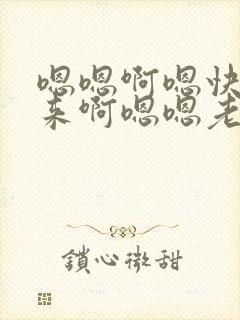 嗯嗯啊嗯快
来啊嗯嗯老
鎖心微甜